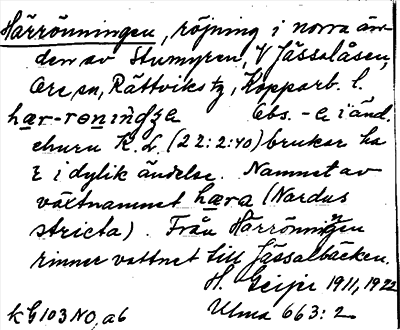 Härrönningen, röjning i norra än-
den av Stumyren, V Jässalåsen,
Ore sn, Rättviks tg, Kopparb. l.
hæ̱r-rønin̄dʒa Obs. -a i änd.
ehuru K. L. (22:2:40) brukar ha
i dylik ändelse. Namnet av
växtnamnet hæra (Nardus
stricta). Från Härrönningen
rinner vattnet till Jässalbäcken.
H. Geijer 1911, 1922
kG103NO, a6 Ulma 663:2